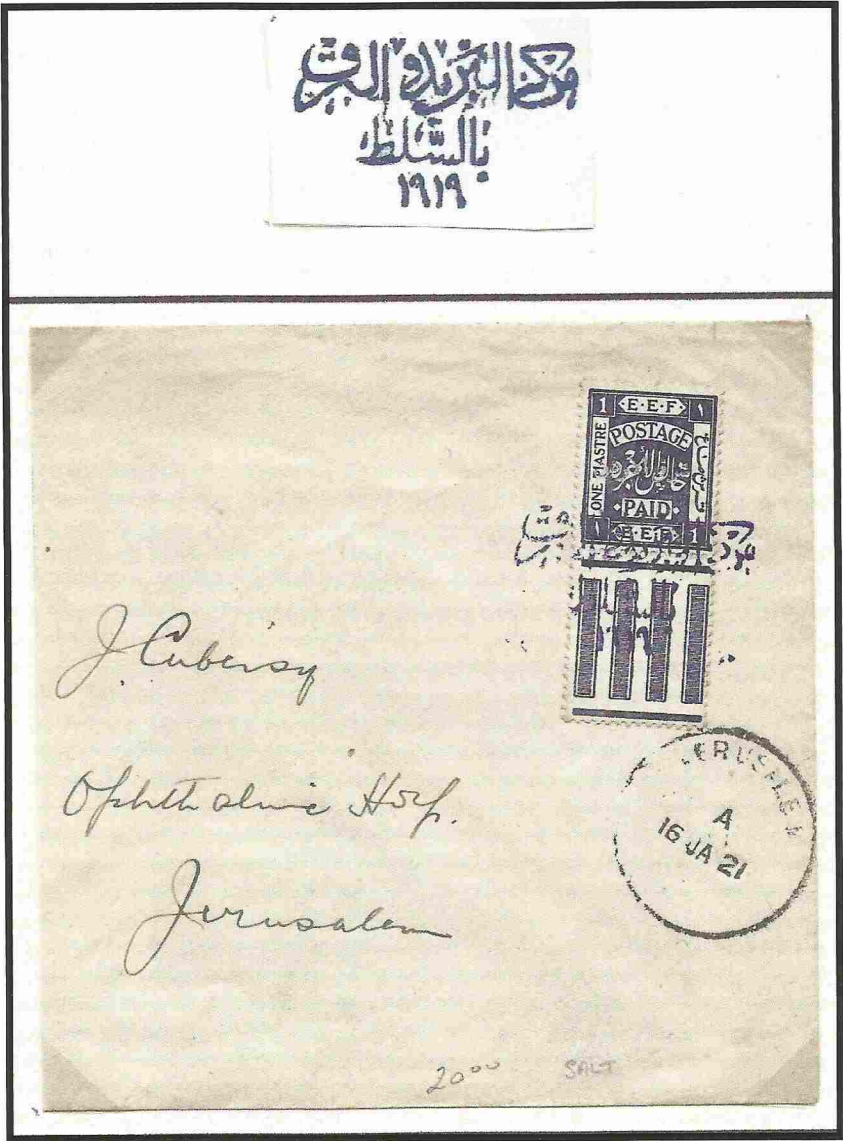 مركز البَريد و البرق
بالسَّلط
١٩١٩
1 E.E.F ١
POSTAGE
ONE PIASTRE
PAID
١ E.E.F 1
J. Cubeisy
Ophthalmic Hosp.
Jerusalem
JERUSALEM
A
16 JA 21
20⁰⁰ SALT